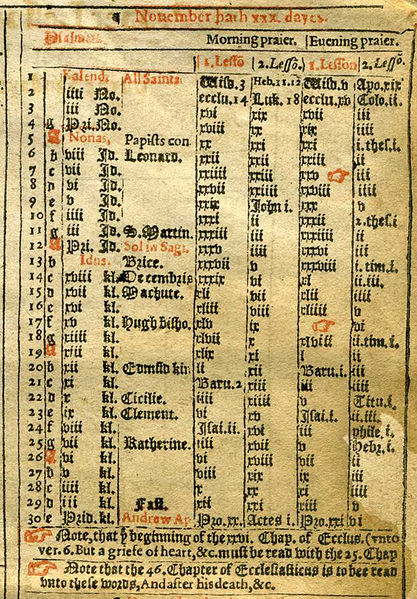 Nouember hath xxx. dayes.
Psalmes. Morning praier. Euening praier.
1. Lessō 2. Lessō. 1. Lesson 2. Lessō.
1 Kalend. All Saints. Wisd. 3 Heb. 11.12 Wisd. v Apo. xix
2 iiii No. ecclu. 14 Luk. 18 ecclu. xv Colo. ii.
3 iii No. xvi xix xvii iii
4 g Pri. No. xviii xx xix iiii
5 A Nonas, Papists con xx xxi xxi i. thes. i.
6 b viii Id. Leonard. xxii xxii xxiii ii
7 c vii Id. xxiiii xxiii ☞ iii
8 d vi Id. xxvii xxiiii xxviii iiii
9 e v Id. xxix John i. xxx v
10 f iiii Id. xxxi ii xxxii 2. thes. i
11 g iii Id. S. Martin. xxxiii iii xxxiiii ii
12 A Pri. Id. Sol in Sagi. xxxv iiii xxxvi iii
13 b Idus. Brice. xxxvii v xxxviii i. tim. i.
14 c xviii kl. Decembris xxxix vi xl ii.iii.
15 d xvii kl. Machute. xli vii xlii iiii
16 e xvi kl. xliii viii xliiii v
17 f xv kl. Hugh bisho. xlv ix ☞ vi
18 g xiiii kl. xlvii x xlviii ii. tim. i.
19 A xiii kl. xlix xi l ii
20 b xii kl. Edmūd kin li xii Baru. i. iii
21 c xi kl. Baru. 2 xiii iii iiii
22 d x kl. Cicilie. iiii xiiii v Titu. i.
23 e ix kl. Clement. vi xv Isai. i ii.iii.
24 f viii kl. Isai. ii xvi iii phile. i.
25 g vii kl. Katherine. iiii xvii v Hebr. i.
26 A vi kl. vi xviii vii ii
27 b v kl. viii xix ix iii
28 c iiii kl. x xx xi iiii
29 d iii kl. Fast. xii xxi xiii v
30 e Prid. kl. Andrew Ap. Pro. xx. Actes i. Pro. xxi vi
☞ Note, that yͤ beginning of the xxvi. Chap. of Ecclus. (vnto
ver. 6. But a griefe of heart, &c. must be read with the 25. Chap
☞ Note that the 46. Chapter of Ecclesiasticus is to bee read
vnto these words, And after his death, &c.